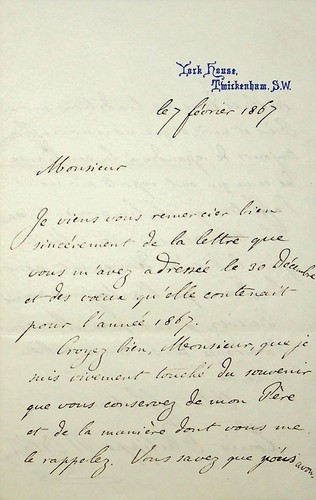 York House,
Twickenham. S.W.
le 7 février 1867
Monsieur
Je viens vous remercier bien
sincérement de la lettre que
vous m'avez adressée le 30 Décembre
et des voeux qu'elle contenait
pour l'année 1867.
Croyez bien, Monsieur, que je
suis vivement touché du souvenir
que vous conservez de mon Père
et de la manière dont vous me
le rappelez. Vous savez que nous avons